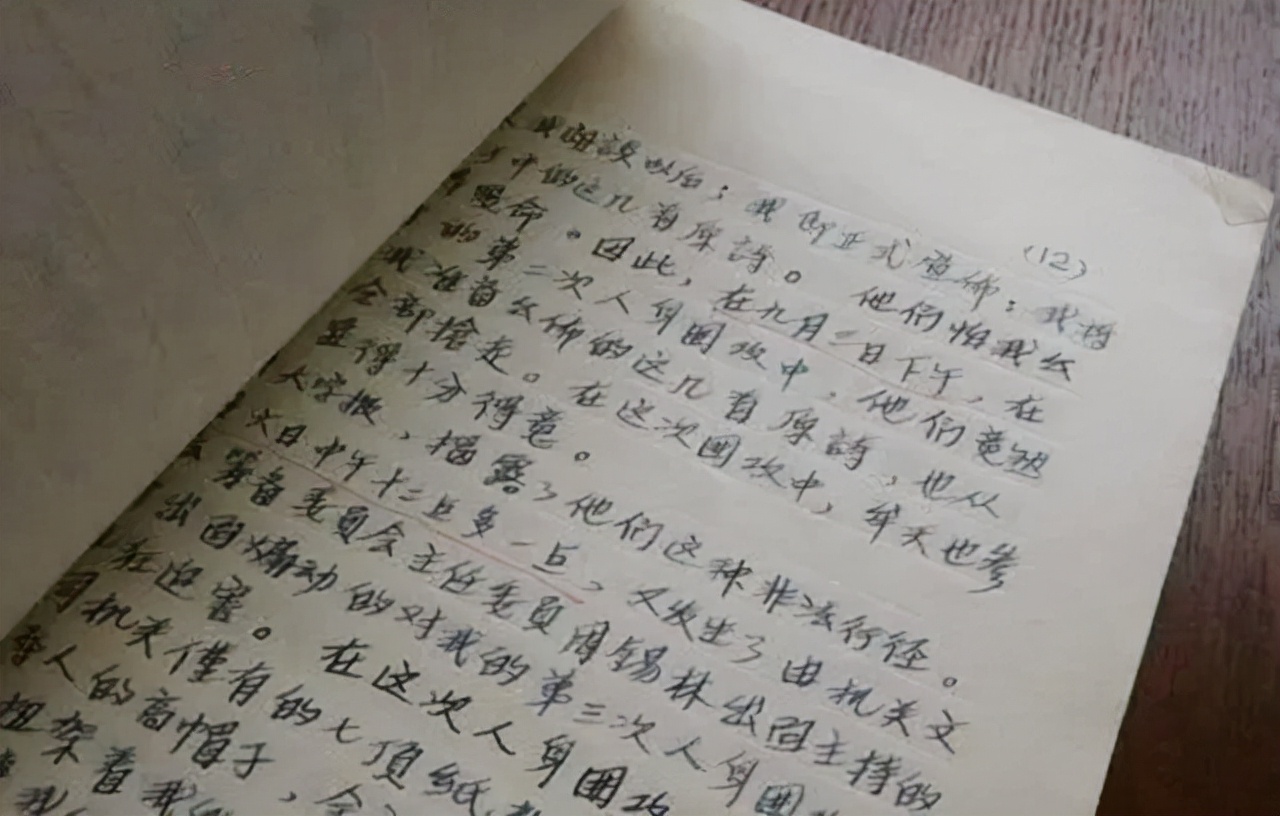 我朗誦以后；我即正式宣佈：我將
中的这几首原詩。他们怕我公
命。因此，在九月二日下午，在
的第二次人身圍攻中，他们竟然
我准备公佈的这几首原詩，也从
全部搶走。在这次圍攻中，牟天也参
显得十分得意。
大字报，揭露了他们这种非法行径。
六日中午十二点多一点，又发生了由机关文
筹备委员会主任委员周錫林出面主持的
出面煽动的对我的第三次人身圍
在迫害。在这次人身圍攻
机关僅有的七頂紙
人的高帽子，全
架着我
(12)